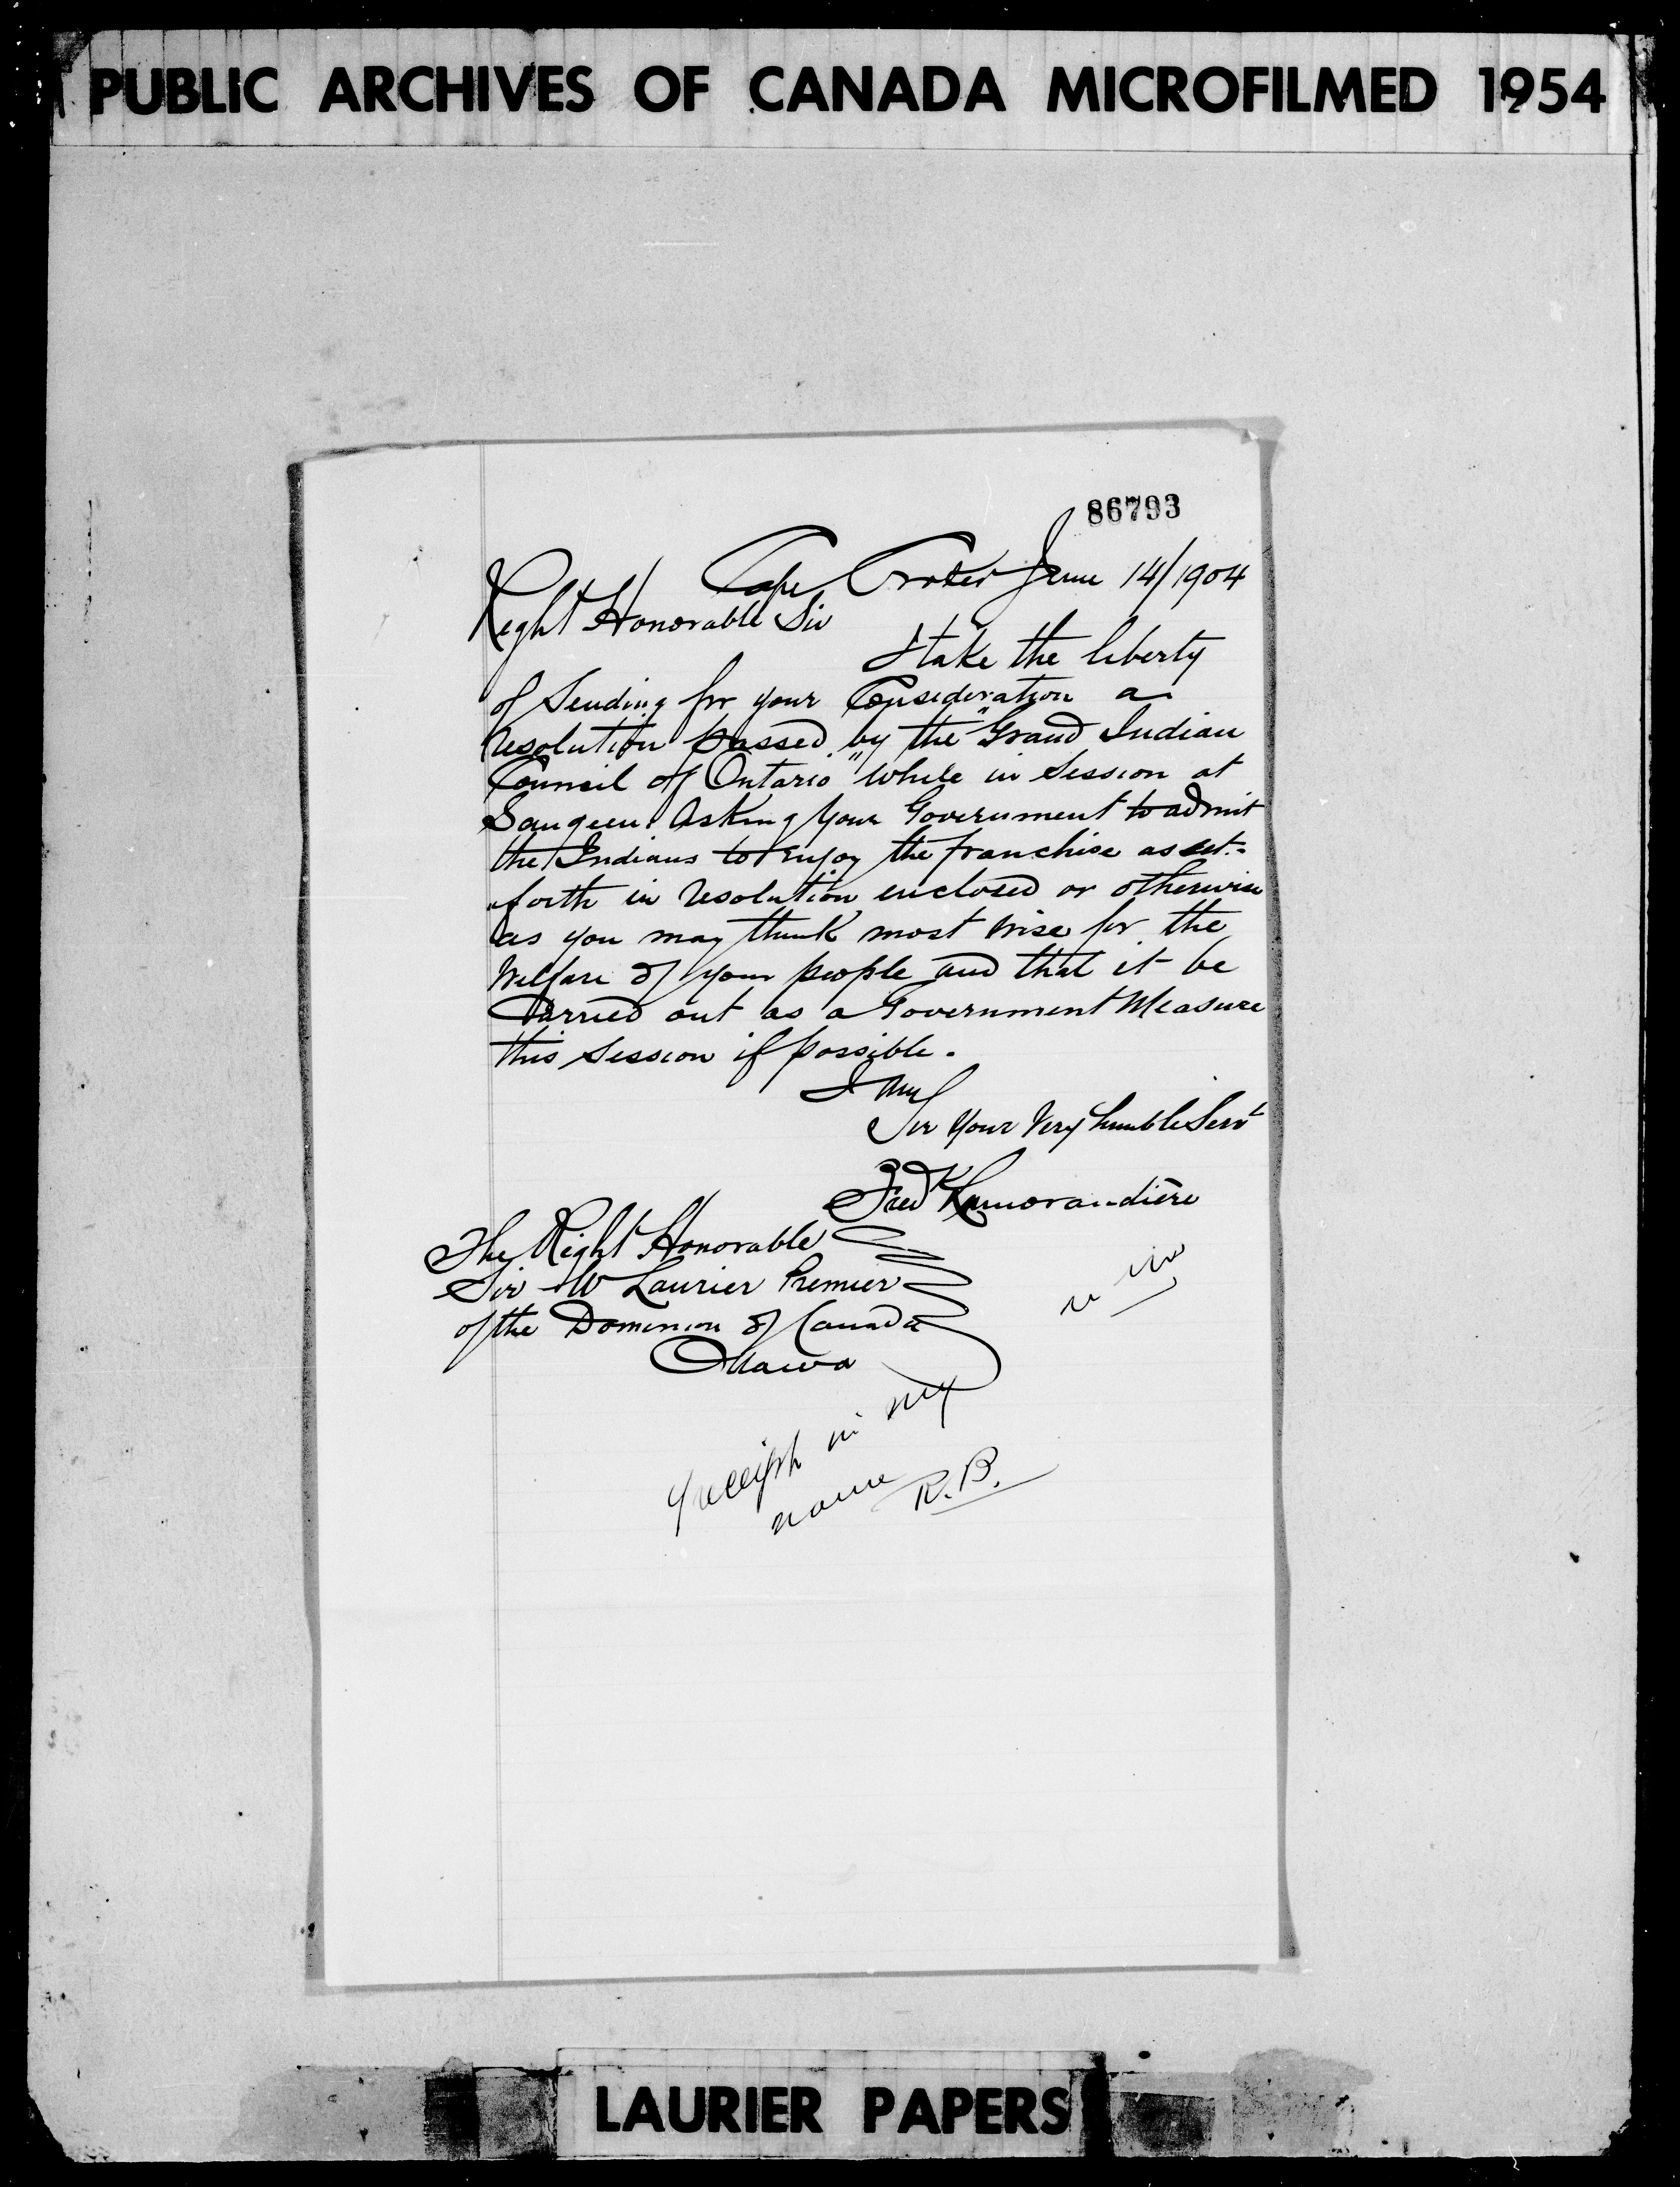 PUBLIC ARCHIVES OF CANADA MICROFILMED 1954
86793
Cape Croker June 14/1904
Right Honorable Sir
I take the liberty
of Sending for your Consideration a
resolution passed by the "Grand Indian
Council of Ontario" while in Session at
Saugeen. Asking Your Government to admit
the Indians to enjoy the franchise as set-
forth in resolution enclosed or otherwise
as you may think most wise for the
Welfare of your people and that it be
Carried out as a Government Measure
this Session if possible.
I am
Sir Your Very humble Servt
Fred Lamorandière
The Right Honorable
Sir W Laurier Premier
of the Dominion of Canada
Ottawa
in my
name R.B.
LAURIER PAPERS